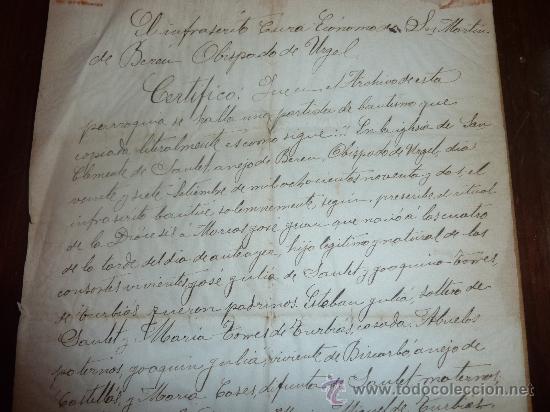 El infrascrito Cura Ecónomo de Sn Martin
de Bereu Obispado de Urgel.
Certifico: Que en el Archivo de esta
parroquia se halla una partida de bautismo que
copiada literalmente es como sigue: En la iglesia de San
Clemente de Saulet anejo de Bereu, Obispado de Urgel, dia
veinte y siete Setiembre de mil ochocientos noventa y dos, el
infrascrito bauticé solemnemente, segun prescribe el ritual
de la Diócesis á Marcos, José, Juan que nació á las cuatro
de la tarde del dia de anteayer, hijo legítimo y natural de los
consortes vivientes, José Juliá de Saulet y Joaquina Tomes,
de Turbiás, fueron padrinos, Esteban Juliá, soltero de
Saulet y Maria Tomes de Turbiás, casada. Abuelos
paternos, Joaquin Juliá, viviente de Biscarbó anejo de
Castellás, y Maria Cases, difunta de Saulet, maternos,
todocoleccion.net